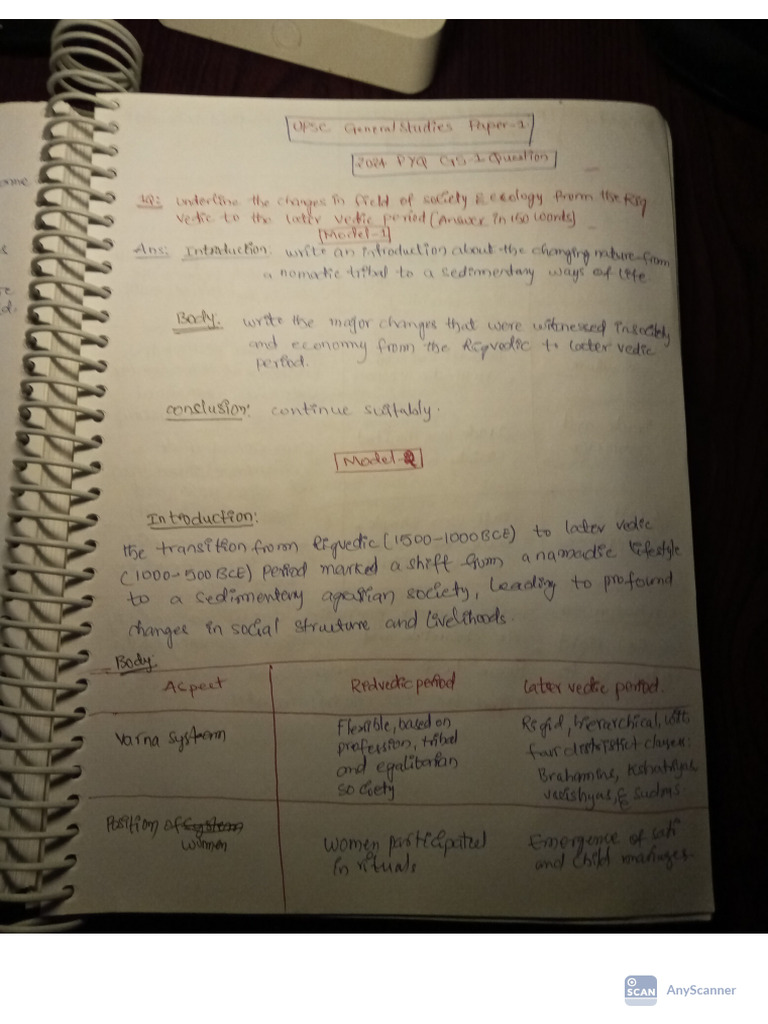 UPSC General Studies Paper-1
2024 PYQ GS-1 Question
1Q: Underline the changes in field of society & ecology from the Rig
vedic to the later vedic period (Answer in 150 words)
Model-1
Ans: Introduction: write an introduction about the changing nature from
a nomatic tribal to a sedimmentary ways of life
Body: write the major changes that were witnessed in society
and economy from the Rigvedic to later vedic
period.
conclusion: continue suitably.
Model-2
Introduction:
the transition from Rigvedic (1500-1000 BCE) to later vedic
(1000-500 BCE) period marked a shift from a namadic lifestyle
to a sedimentary agarian society, leading to profound
changes in social structure and livelihoods.
Body
Aspect
Redvedic period
later vedic period.
Varna system
Flexible, based on
profession, tribal
and egalitarian
society
Rigid, hierarchical, with
four classes:
Brahamins, Kshatriyas
vaishyas, & Sudras.
Position of system
women
Women participated
in rituals
Emergence of sati
and child marriages.
me
s
d.
SCAN AnyScanner